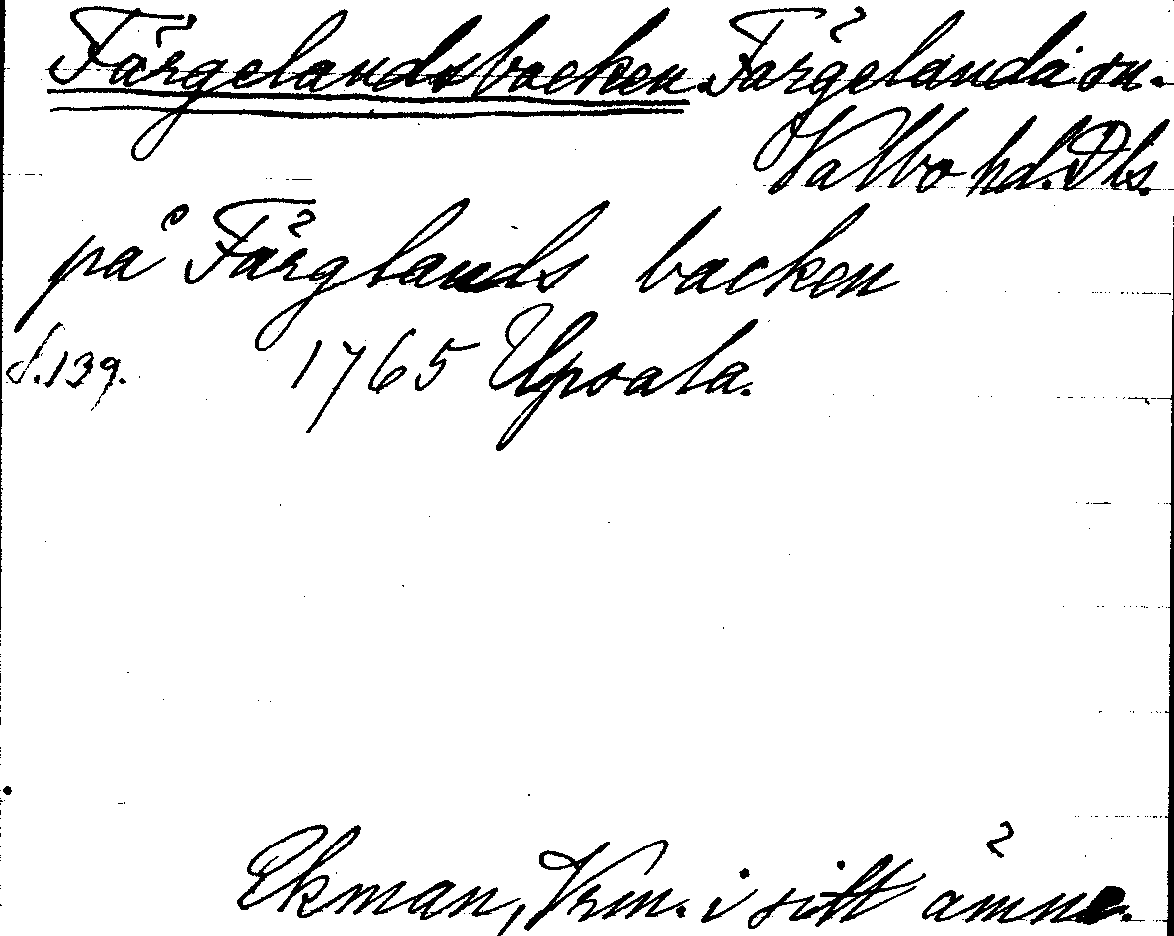 Färgelandsbacken. Färgelanda sn.
Valbo hd. Dls.
på Färglands backen
s. 139. 1765 Upsala.
Ekman, Vrm. i sitt ämne.